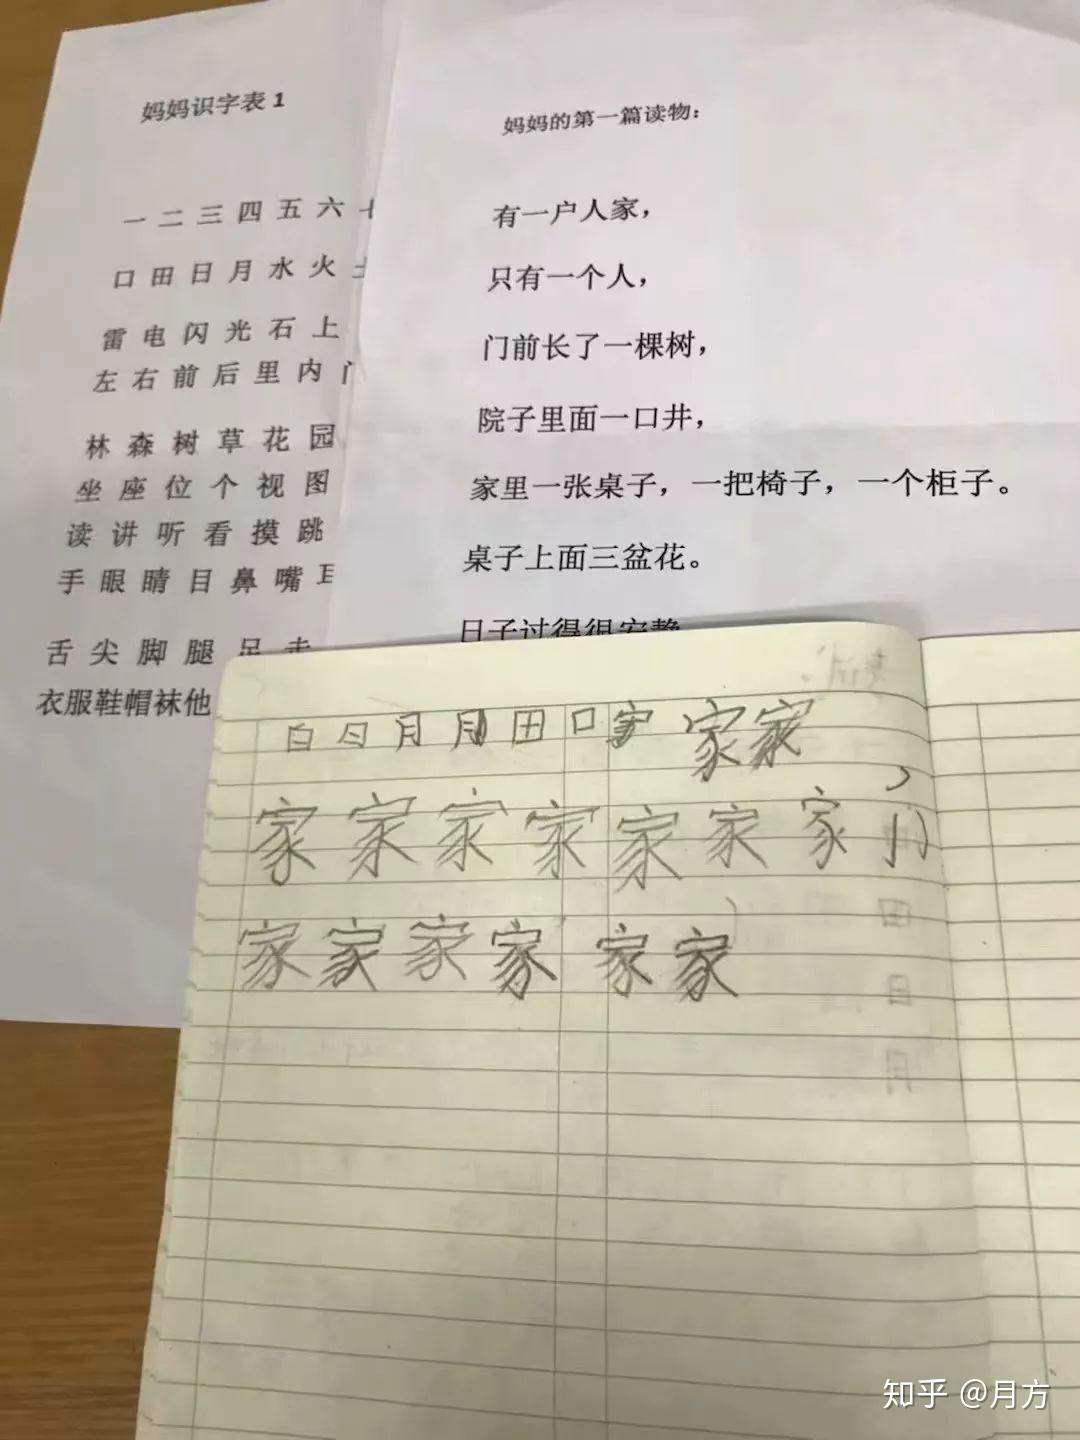 妈妈识字表1
一二三四五六
口田日月水火
雷电闪光石上
左右前后里内
林森树草花园
坐座位个视图
读讲听看摸跳
手眼睛目鼻嘴
舌尖脚腿足走
衣服鞋帽袜他
妈妈的第一篇读物：
有一户人家，
只有一个人，
门前长了一棵树，
院子里面一口井，
家里一张桌子，一把椅子，一个柜子。
桌子上面三盆花。
日子过得很安静
白日月月田口家家家
家家家家家家家
家家家家家家
知乎 @月方